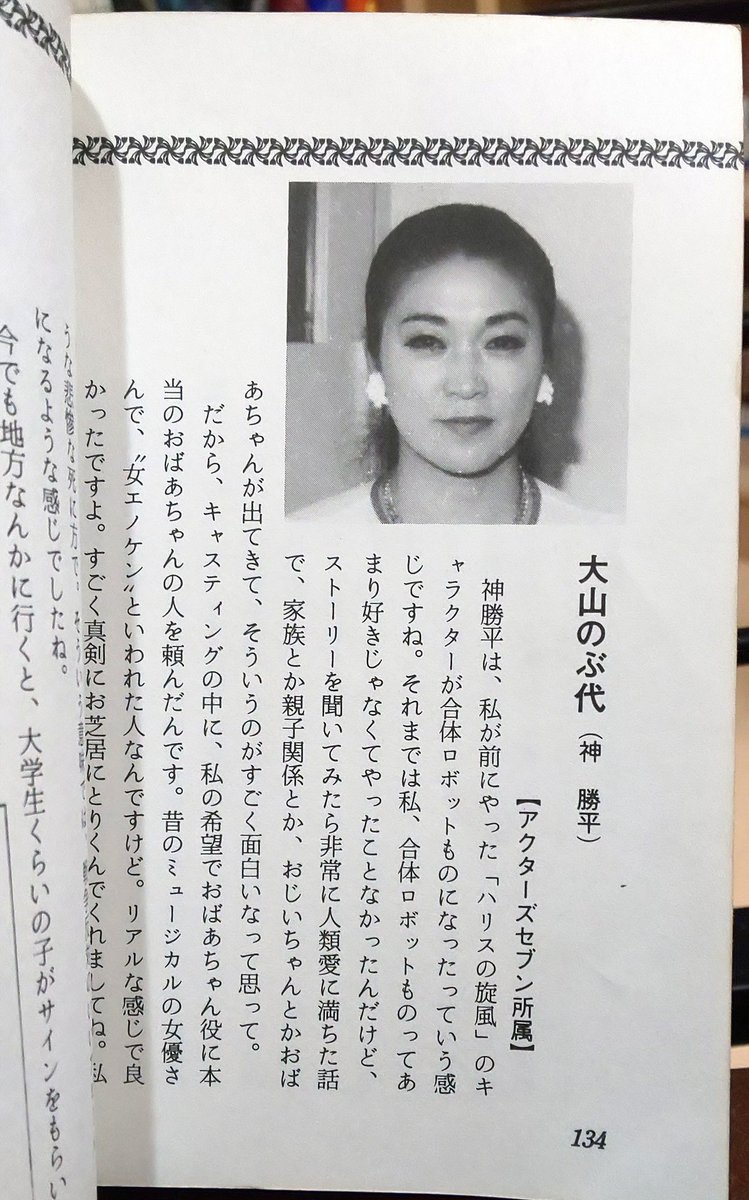 大山のぶ代(神 勝平)
【アクターズセブン所属】
神勝平は、私が前にやった「ハリスの旋風」のキ
ャラクターが合体ロボットものになったっていう感
じですね。それまでは私、合体ロボットものってあ
まり好きじゃなくてやったことなかったんだけど、
ストーリーを聞いてみたら非常に人類愛に満ちた話
で、家族とか親子関係とか、おじいちゃんとかおば
あちゃんが出てきて、そういうのがすごく面白いなって思って。
だから、キャスティングの中に、私の希望でおばあちゃん役に本
当のおばあちゃんの人を頼んだんです。昔のミュージカルの女優さ
んで、〝女エノケン〟といわれた人なんですけど。リアルな感じで良
かったですよ。すごく真剣にお芝居にとりくんでくれましてね。私
134
うな悲惨な死に方で、そういう
になるような感じでしたね。
今でも地方なんかに行くと、大学生くらいの子がサインをもらい